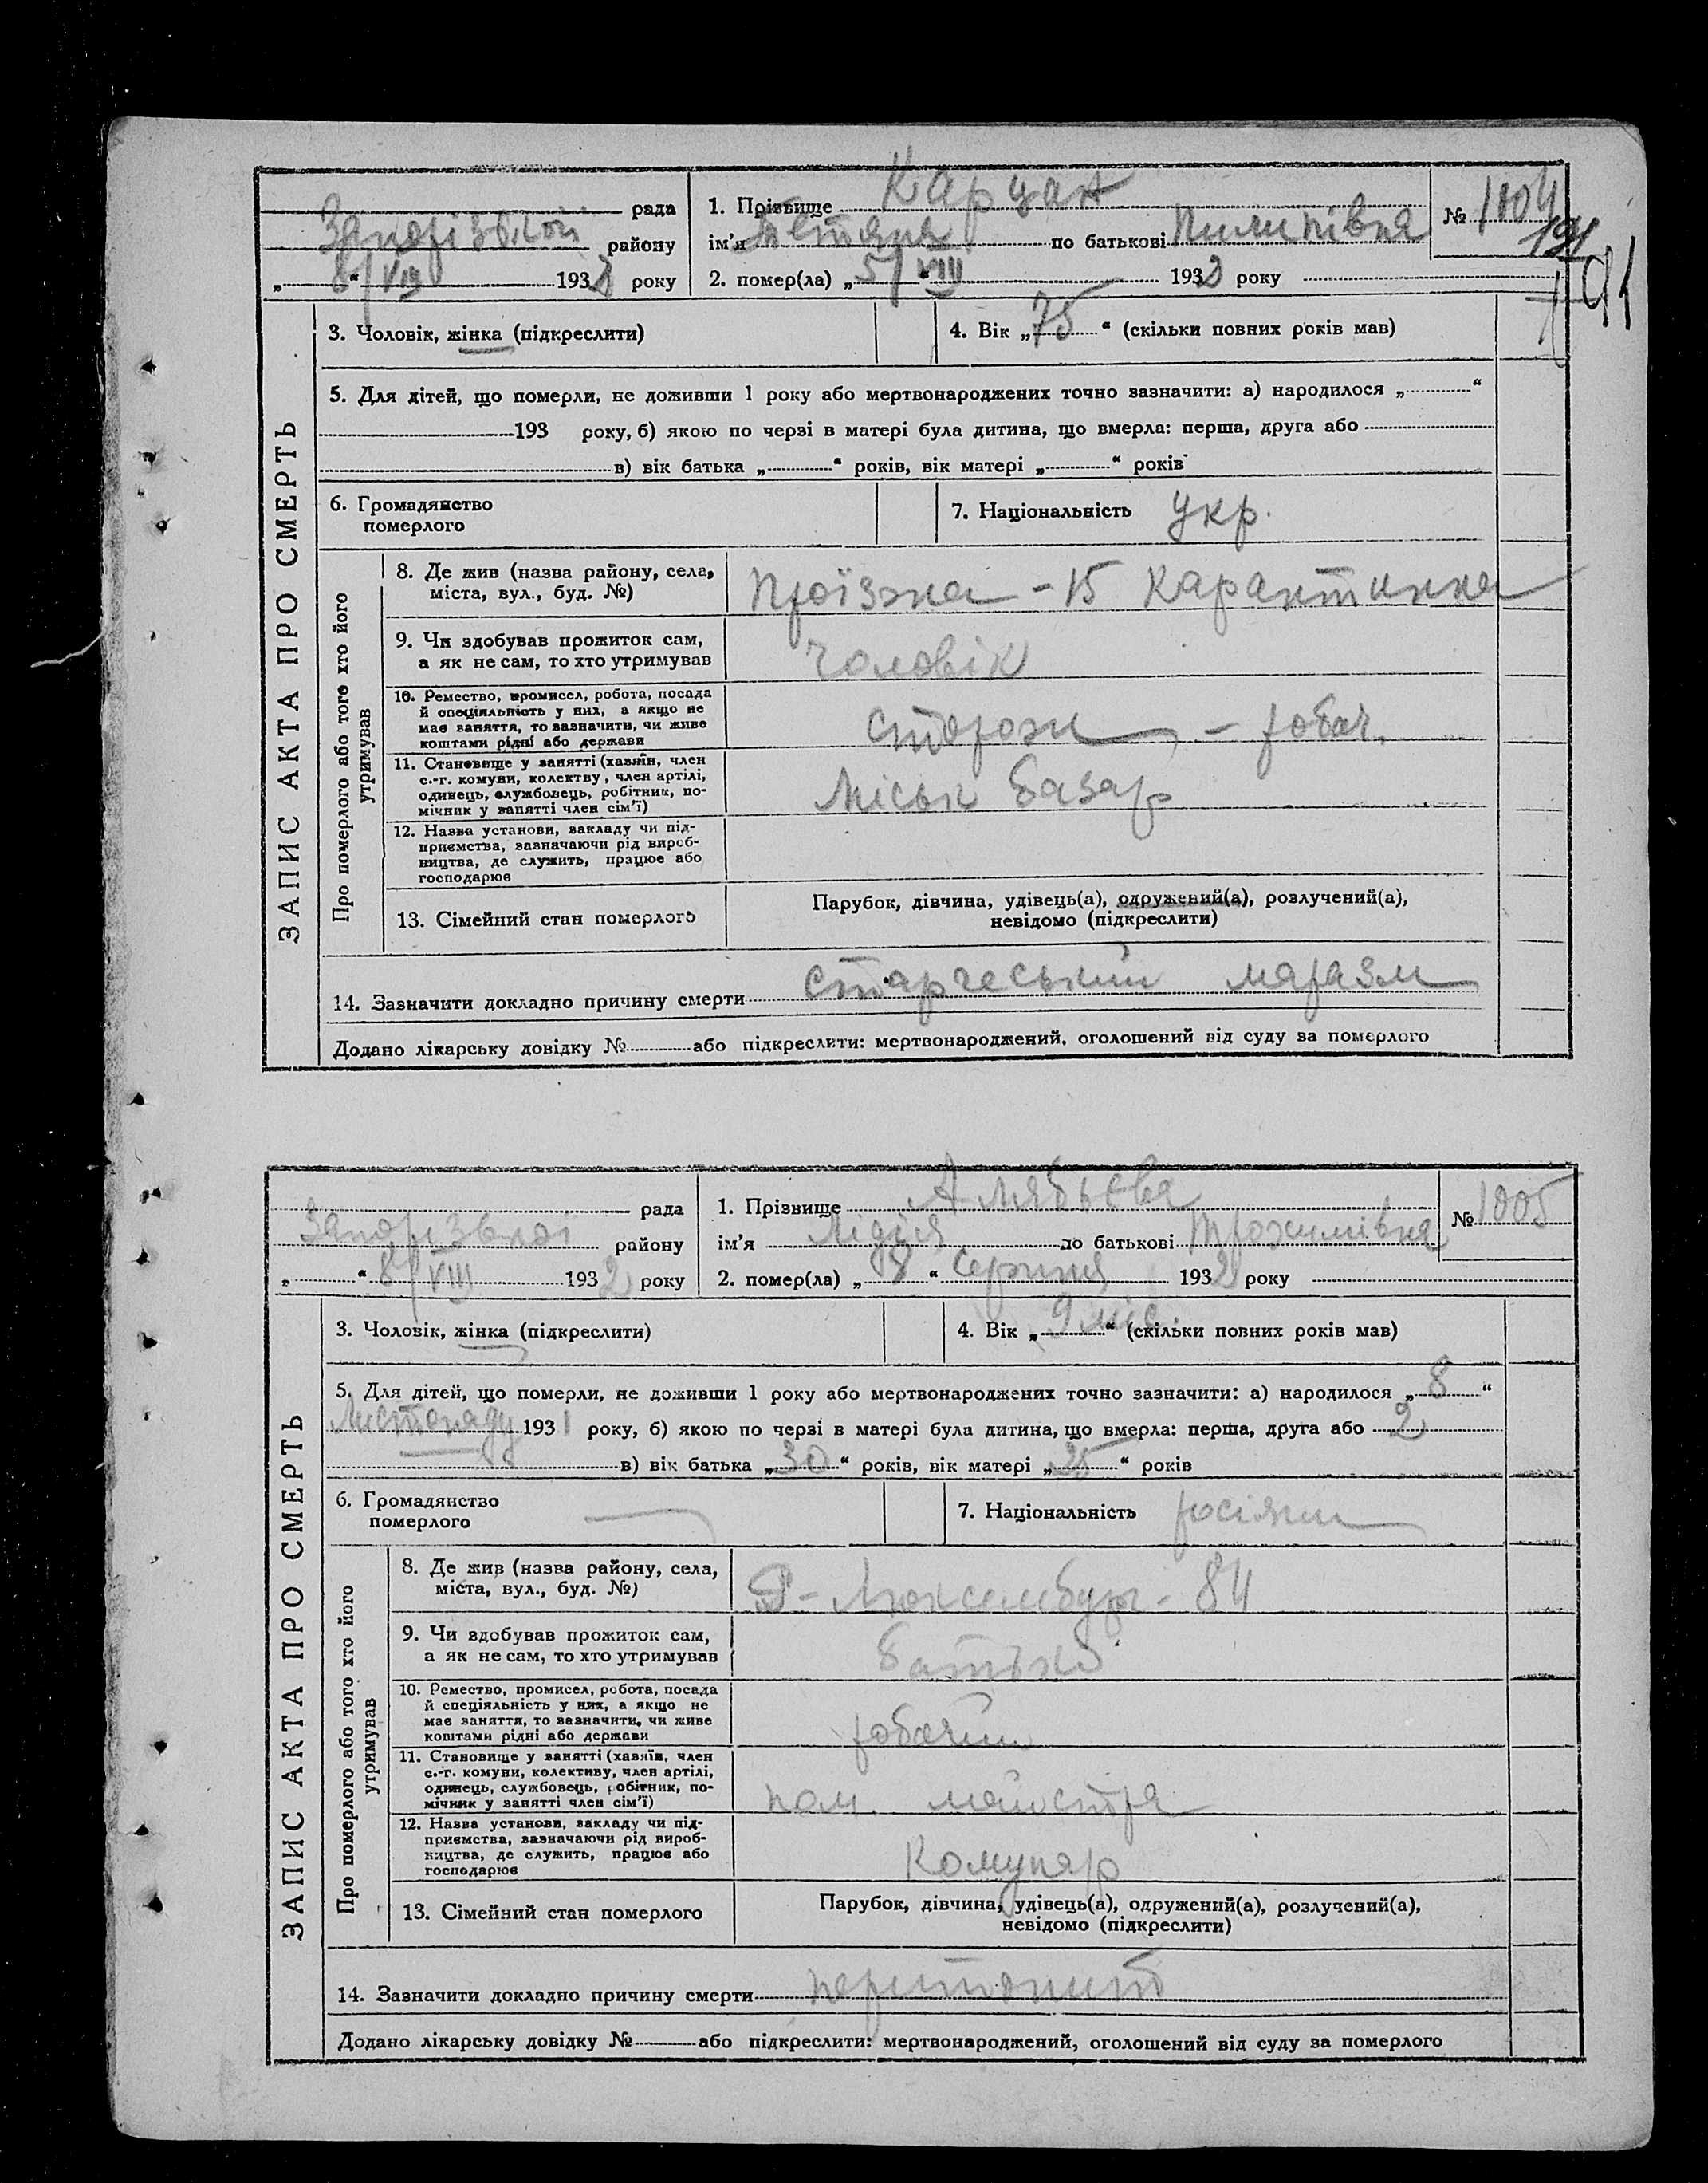 ЗАПИС АКТА ПРО СМЕРТЬ
рада
Запорізької району
„ “ 8/VIII 1932 року
1. Прізвище Карцан
ім'я Тетяна по батькові Пилипівна
2. помер(ла) „5/“ VIII 1932 року
№ 1004
191
191
3. Чоловік, жінка (підкреслити)
4. Вік „75“ (скільки повних років мав)
5. Для дітей, що померли, не доживши 1 року або мертвонароджених точно зазначити: а) народилося „ “
193 року, б) якою по черзі в матері була дитина, що вмерла: перша, друга або
в) вік батька „ “ років, вік матері „ “ років
6. Громадянство
померлого
7. Національність укр.
Про померлого або того хто його
утримував
8. Де жив (назва району, села,
міста, вул., буд. №)
Проїзна - 15 Карантинка
9. Чи здобував прожиток сам,
а як не сам, то хто утримував
чоловік
10. Ремество, промисел, робота, посада
й спеціяльність у них, а якщо не
має заняття, то зазначити, чи живе
коштами рідні або держави
сторож - робач.
11. Становище у занятті (хазяїн, член
с.-г. комуни, колектву, член артілі,
одинець, службовець, робітник, по-
мічник у занятті член сім'ї)
Міськ базар
12. Назва установи, закладу чи під-
приємства, зазначаючи рід вироб-
ництва, де служить, працює або
господарює
13. Сімейний стан померлого
Парубок, дівчина, удівець(а), одружений(а), розлучений(а),
невідомо (підкреслити)
14. Зазначити докладно причину смерти старческий маразм
Додано лікарську довідку № або підкреслити: мертвонароджений, оголошений від суду за померлого
ЗАПИС АКТА ПРО СМЕРТЬ
рада
Запорізької району
„ “ 8/VIII 1932 року
1. Прізвище Алябьєва
ім'я Лідія по батькові Трохимівна
2. помер(ла) „8“ Серпня 1932 року
№ 1005
3. Чоловік, жінка (підкреслити)
4. Вік „9 міс.“ (скільки повних років мав)
5. Для дітей, що померли, не доживши 1 року або мертвонароджених точно зазначити: а) народилося „8“
Листопаду 1931 року, б) якою по черзі в матері була дитина, що вмерла: перша, друга або 2
в) вік батька „30“ років, вік матері „25“ років
6. Громадянство
померлого
7. Національність росіян
Про померлого або того хто його
утримував
8. Де жив (назва району, села,
міста, вул., буд. №)
Р - Люксембург - 84
9. Чи здобував прожиток сам,
а як не сам, то хто утримував
батько
10. Ремество, промисел, робота, посада
й спеціяльність у них, а якщо не
має заняття, то зазначити, чи живе
коштами рідні або держави
робочий
11. Становище у занятті (хазяїн, член
с.-г. комуни, колективу, член артілі,
одинець, службовець, робітник, по-
мічник у занятті член сім'ї)
пом. майстра
12. Назва установи, закладу чи під-
приємства, зазначаючи рід вироб-
ництва, де служить, працює або
господарює
Комунар
13. Сімейний стан померлого
Парубок, дівчина, удівець(а), одружений(а), розлучений(а),
невідомо (підкреслити)
14. Зазначити докладно причину смерти перитонит
Додано лікарську довідку № або підкреслити: мертвонароджений, оголошений від суду за померлого